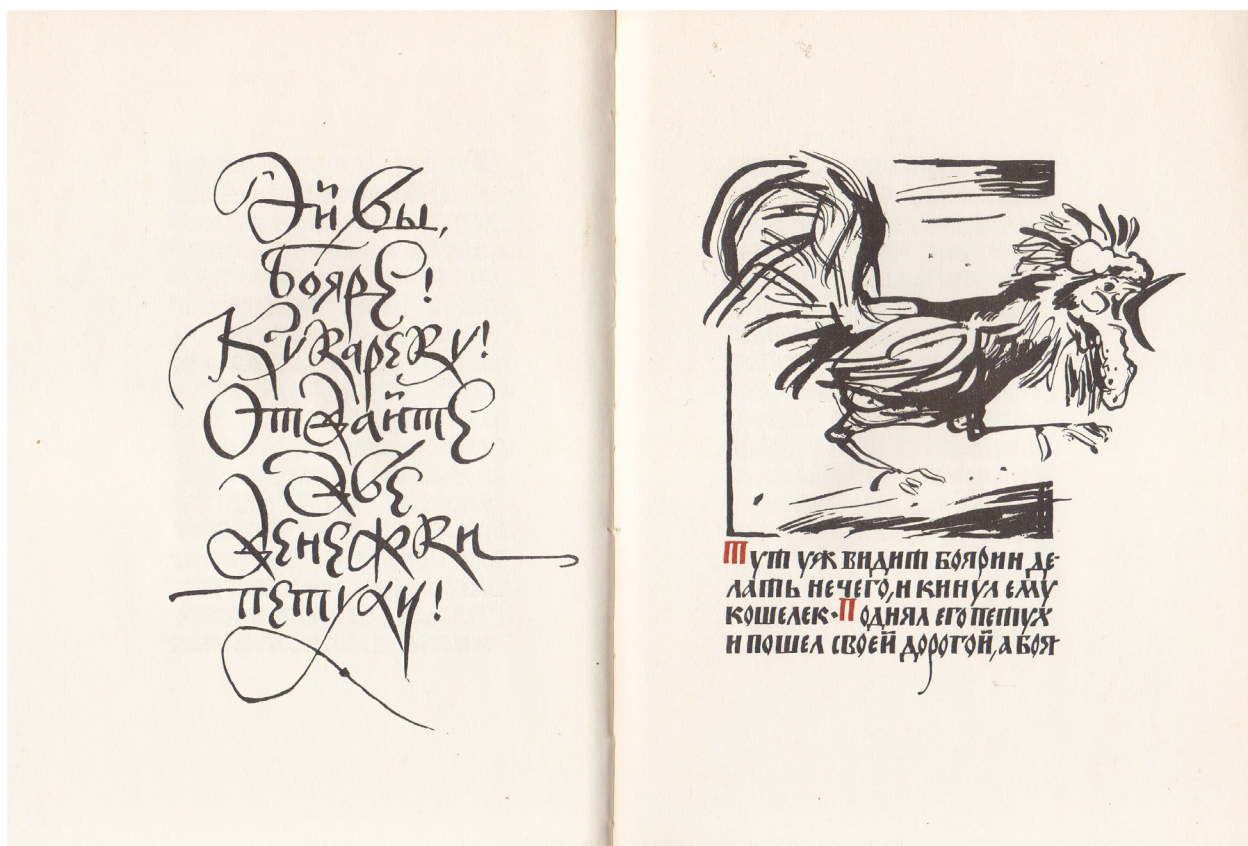 Эй вы,
бояре!
Кукареку!
Отдайте
две
денежки
петуху!
Тут уж видит боярин де-
лать нечего, и кинул ему
кошелек·Поднял его петух
и пошел своей дорогой, а боя-